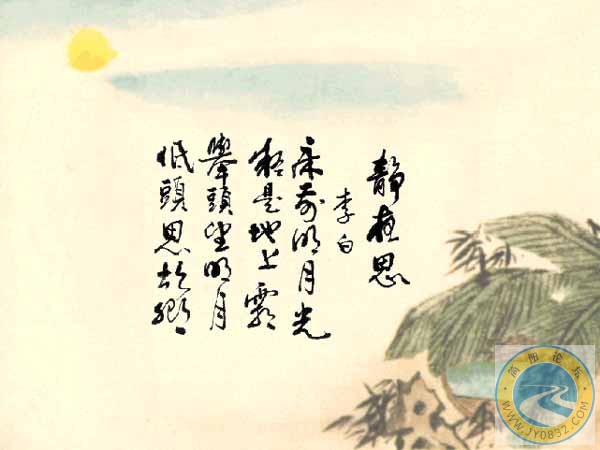 静夜思
李白
床前明月光
疑是地上霜
舉頭望明月
低頭思故鄉
简阳论坛
WWW.JY0832.COM